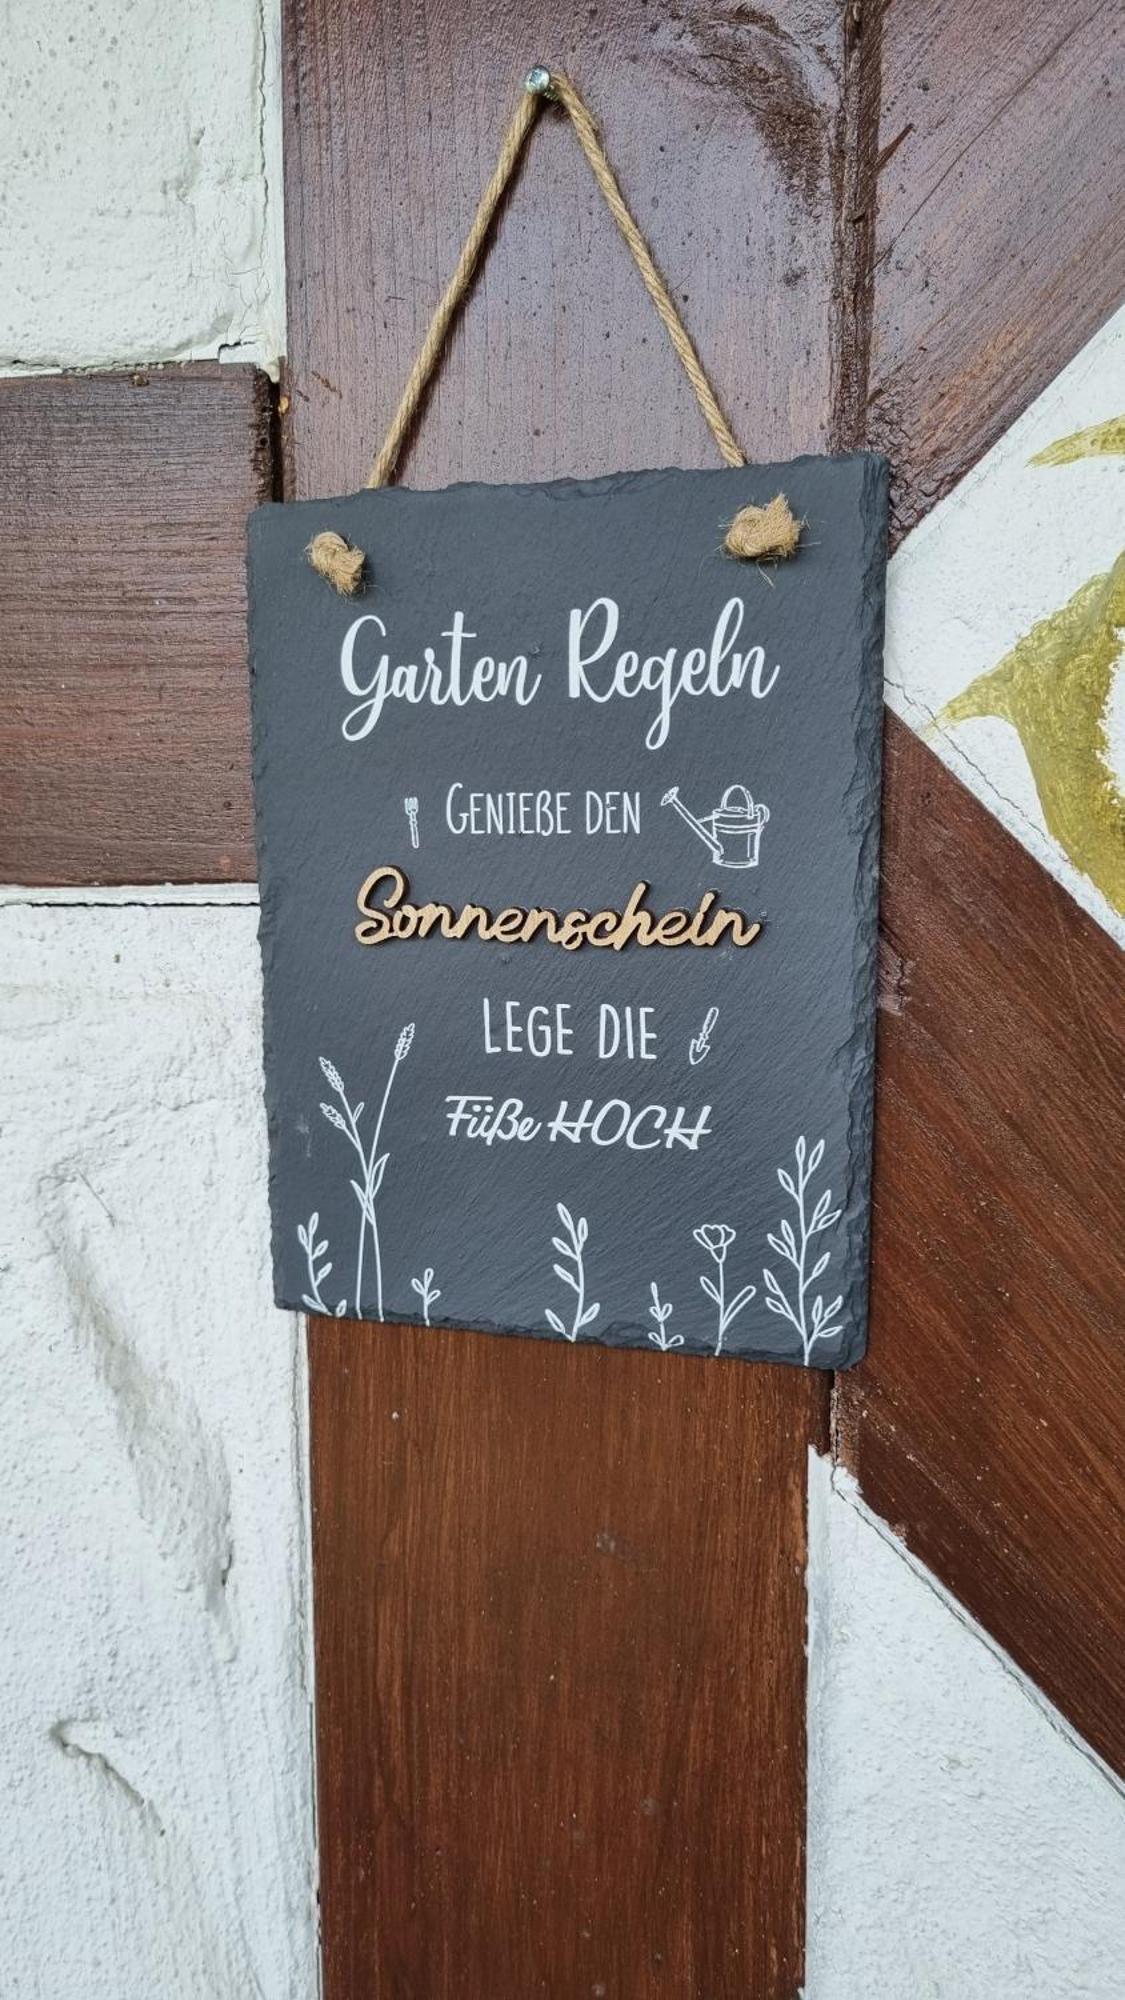 Garten Regeln
GENIEßE DEN
Sonnenschein
LEGE DIE
Füße HOCH